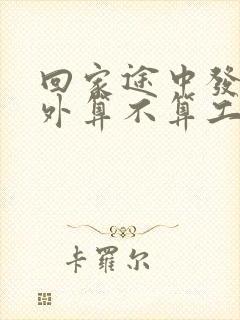 回家途中發
外算不算工
卡羅尔